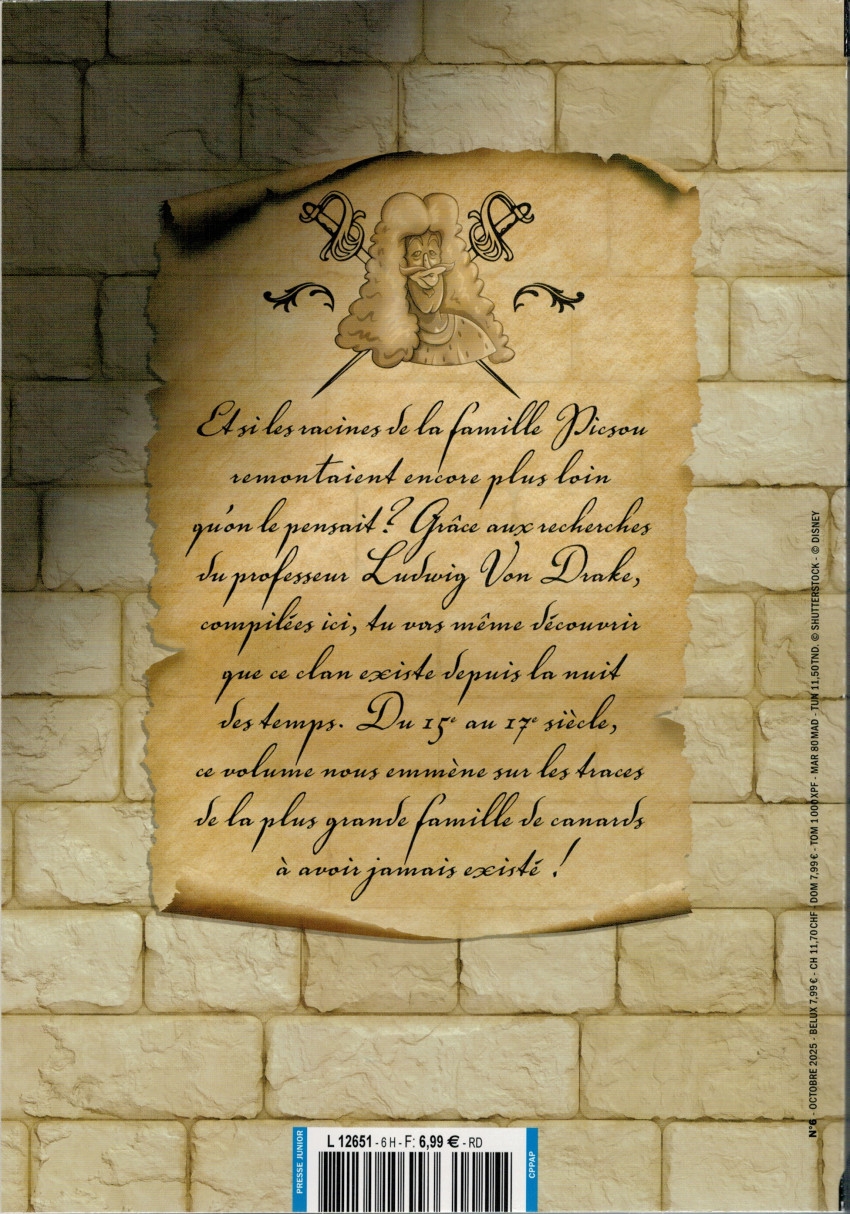 Et si les racines de la famille Picsou
remontaient encore plus loin
qu'on le pensait ? Grâce aux recherches
du professeur Ludwig Von Drake,
compilées ici, tu vas même découvrir
que ce clan existe depuis la nuit
des temps. Du 15e au 17e siècle,
ce volume nous emmène sur les traces
de la plus grande famille de canards
à avoir jamais existé !
N°6 - OCTOBRE 2025 - BELUX 7,99 € - CH 11,70CHF - DOM 7,99 € - TOM 1000XPF - MAR 80MAD - TUN 11,50TND. © SHUTTERSTOCK - © DISNEY
PRESSE JUNIOR
L 12651 - 6 H - F: 6,99 € - RD
CPPAP